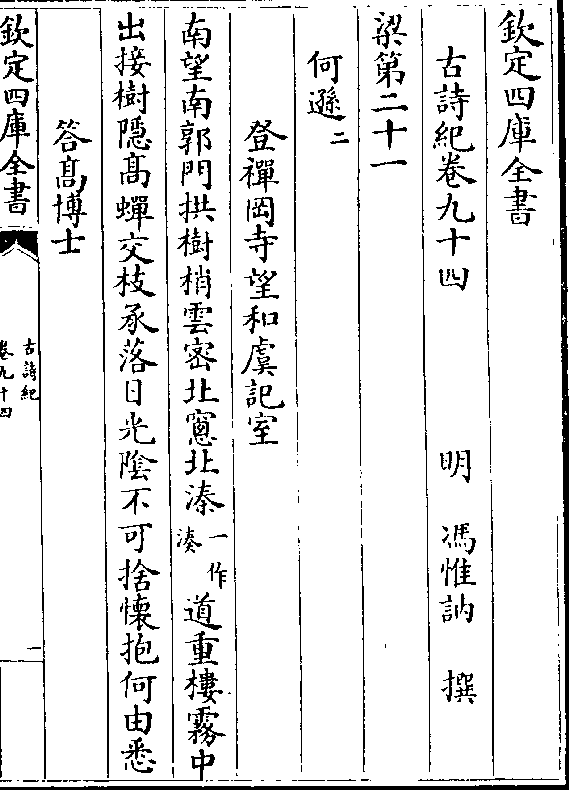 欽定四庫全書
古詩紀卷九十四　明　馮惟訥　撰
梁第二十一
何遜二
登禪岡寺望和虞記室
南望南郭門拱樹梢雲密北窻北溱一作湊道重樓霧中
出接樹隱髙蟬交枝承落日光陰不可捨懷抱何由悉
答髙博士
欽定四庫全書
古詩紀
卷九十四
一